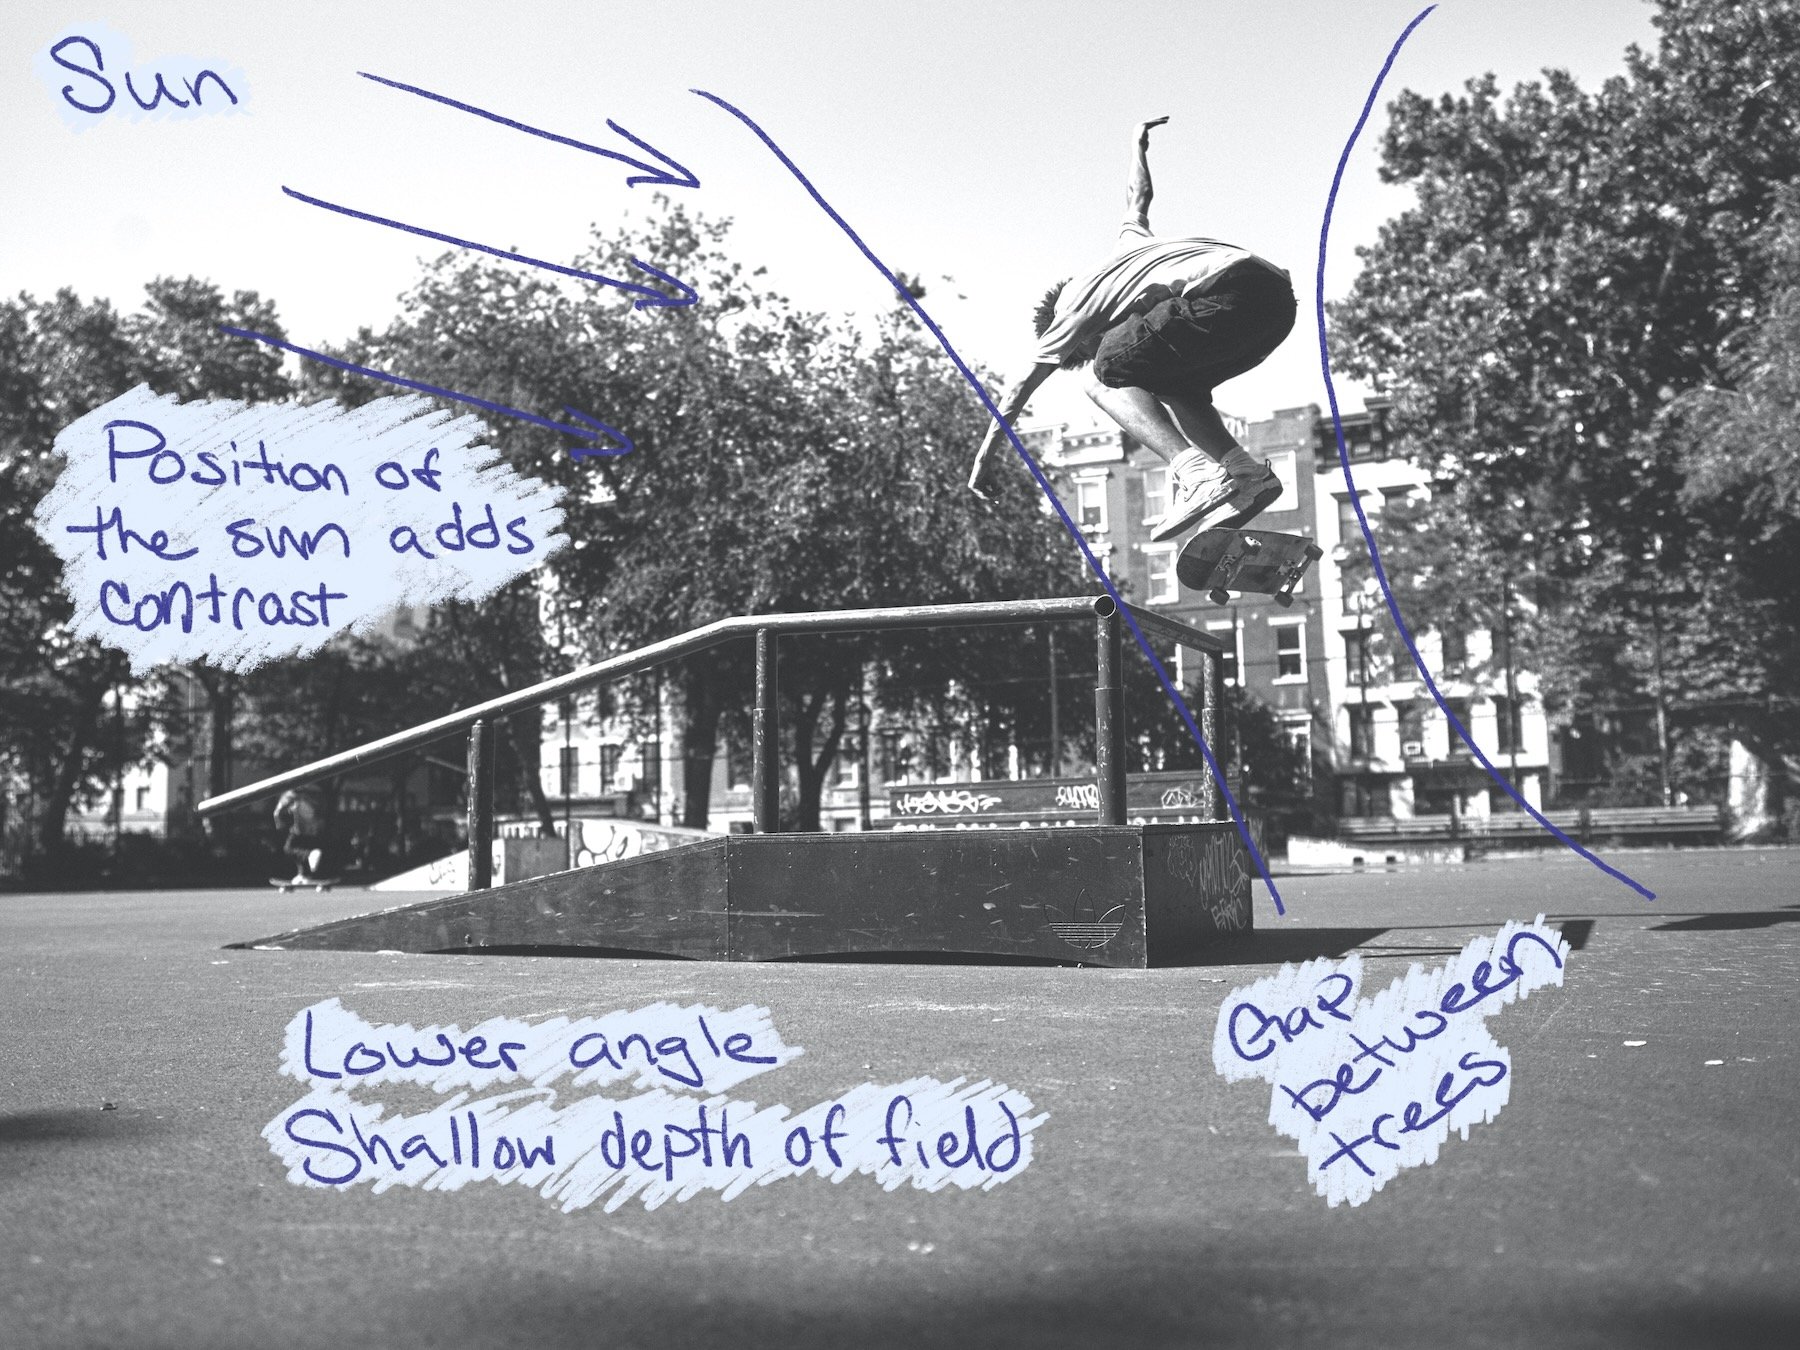 Sun
Position of
the sun adds
contrast
Lower angle
Shallow depth of field
Gap
between
trees